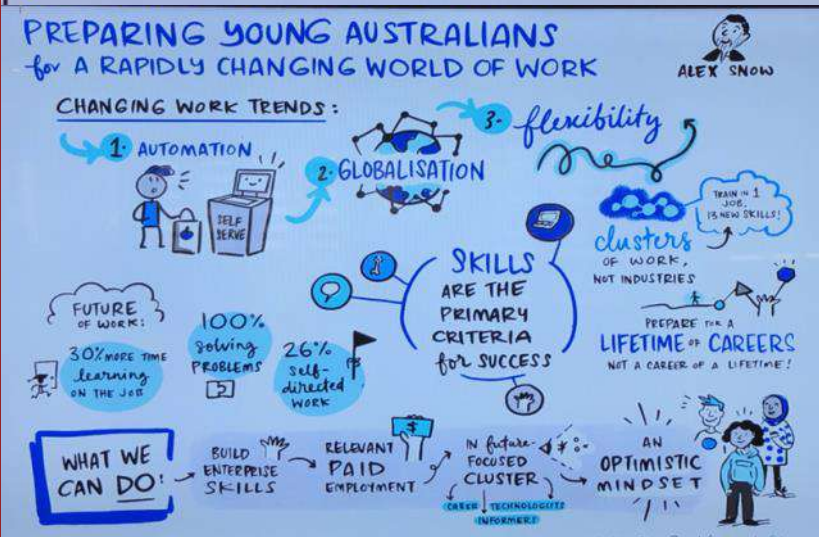 PREPARING YOUNG AUSTRALIANS
for A RAPIDLY CHANGING WORLD OF WORK
ALEX SNOW
CHANGING WORK TRENDS:
1. AUTOMATION
SELF
SERVE
2. GLOBALISATION
3. flexibility
TRAIN IN 1
JOB,
13 NEW SKILLS!
clusters
OF WORK,
NOT INDUSTRIES
SKILLS
ARE THE
PRIMARY
CRITERIA
for SUCCESS
PREPARE FOR A
LIFETIME OF CAREERS
NOT A CAREER OF A LIFETIME!
FUTURE
OF WORK:
30% MORE TIME
learning
ON THE JOB
100%
solving
PROBLEMS
26%
self-
directed
WORK
WHAT WE
CAN DO:
BUILD
ENTERPRISE
SKILLS
RELEVANT
PAID
EMPLOYMENT
$
IN future-
FOCUSED
CLUSTER
TECHNOLOGISTS
INFORMERS
AN
OPTIMISTIC
MINDSET